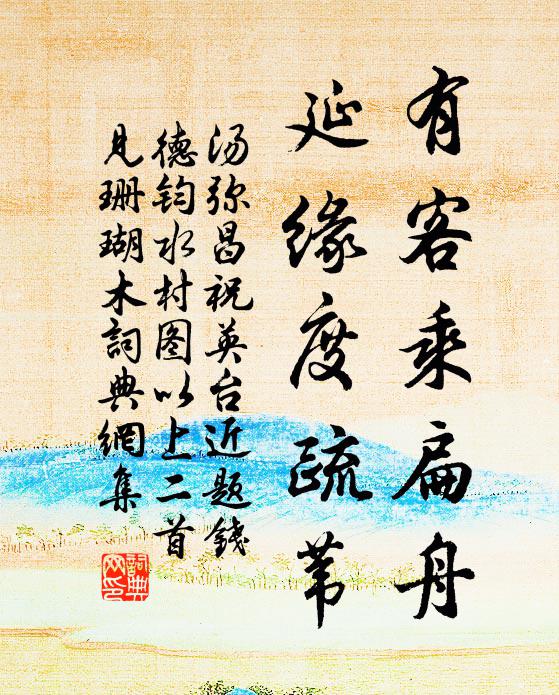 有客乘扁舟
延缘度疏苇
汤弥昌祝英台近题錢
德钧水村图以上二首
见珊瑚木詞典網集
詞典
网印